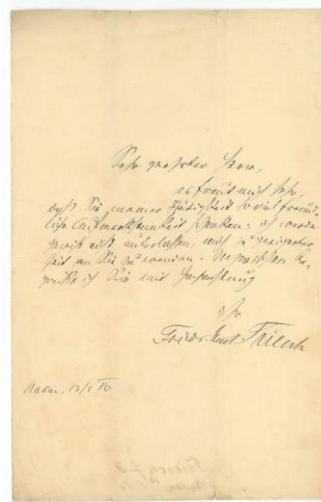 Sehr geehrter Herr,
es freut mich sehr,
daß Sie meiner Thätigkeit so viel freund-
liche Aufmerksamkeit schenken; ich werde
gewiß nicht unterlassen mich zu geeigneter
Zeit an Sie zu wenden. Inzwischen be-
grüße ich Sie mit Hochachtung
Ihr
Friedr. Gust. Triesch